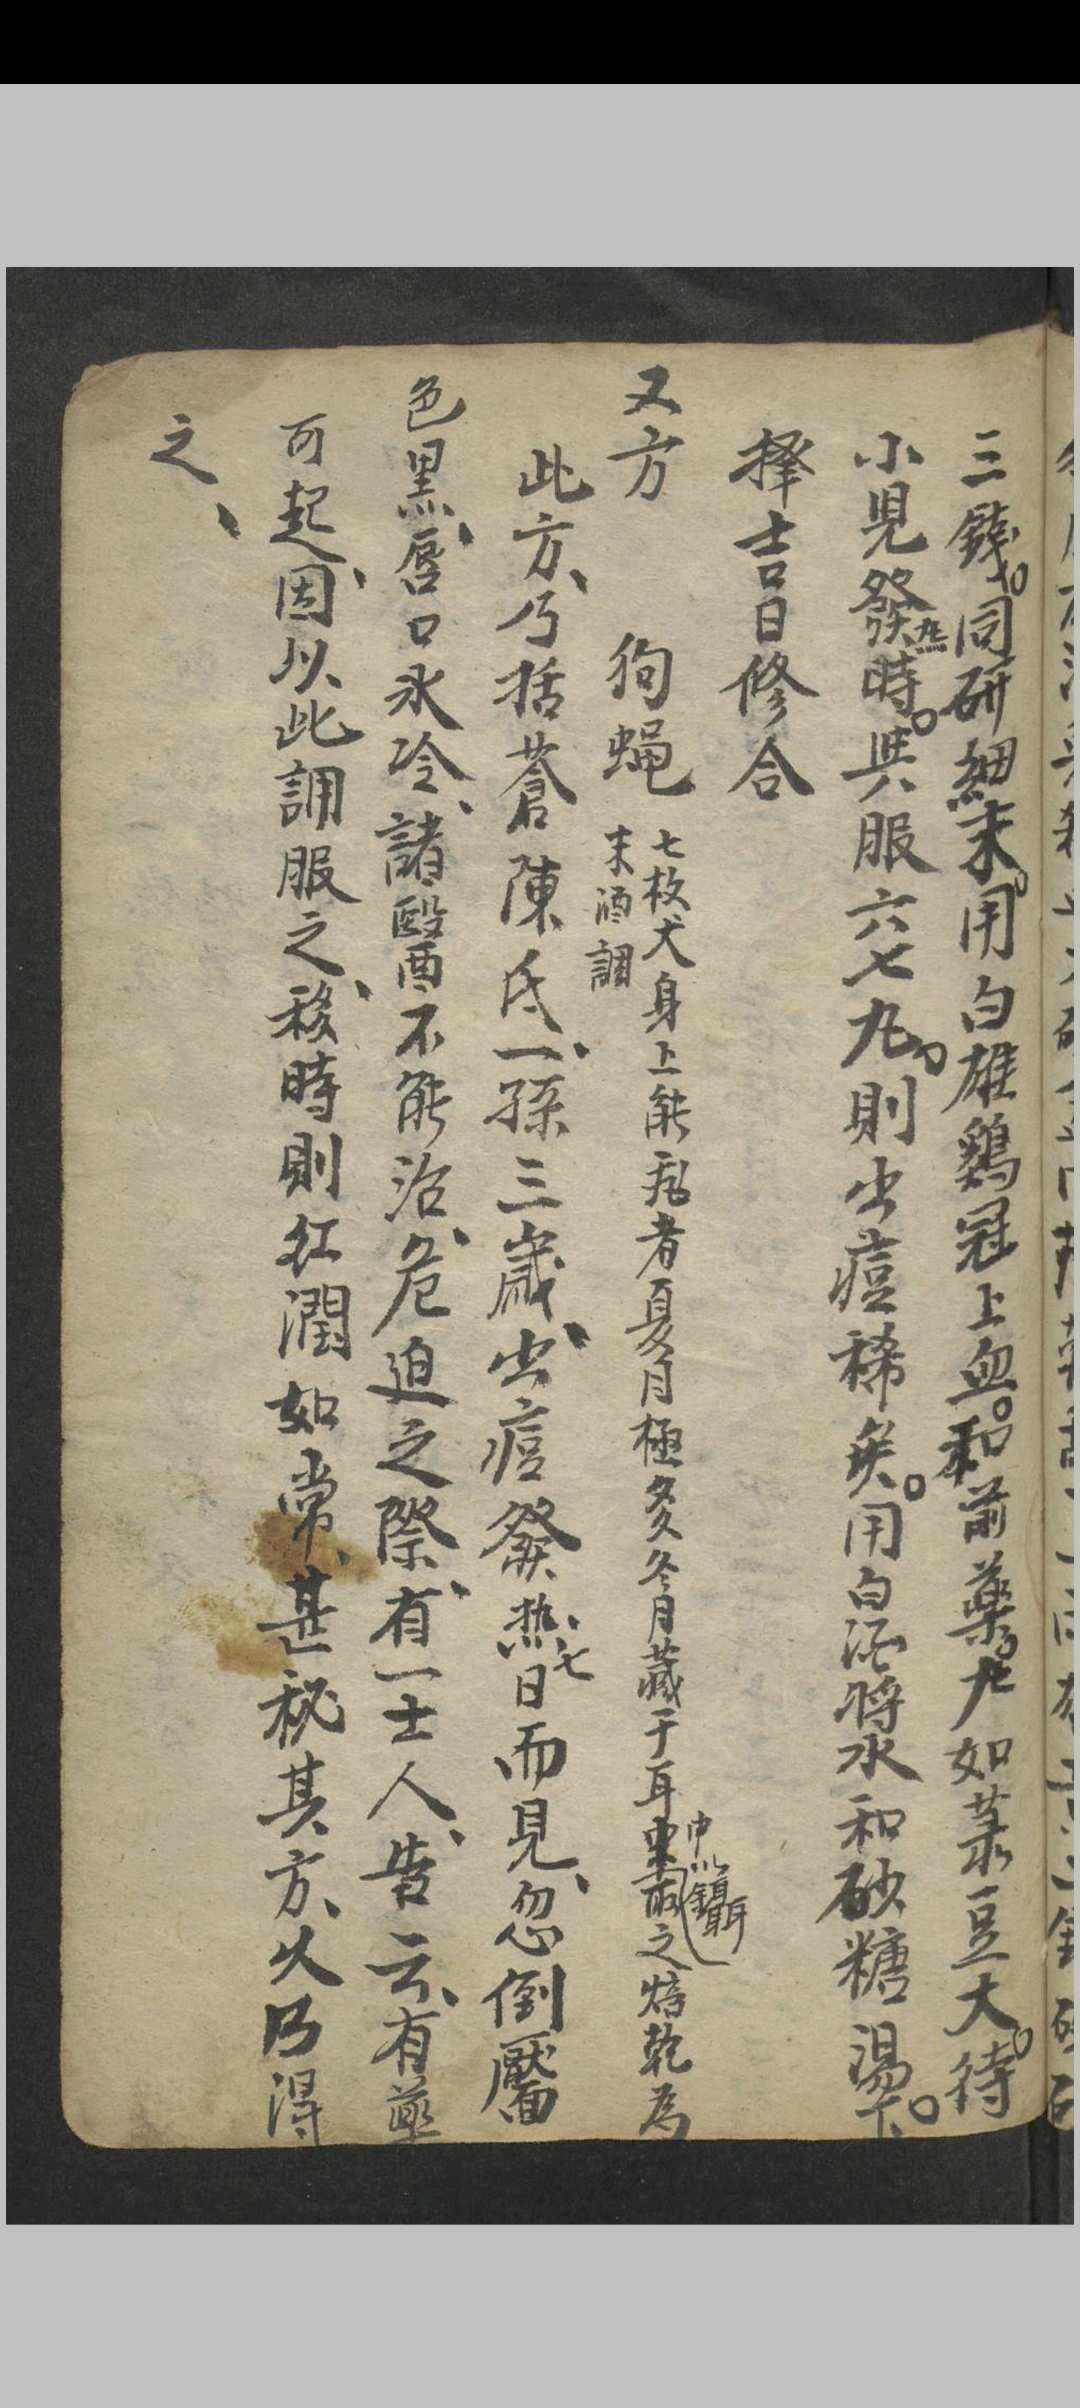 三錢。同研細末。用白雄鷄冠上血。和前藥。丸如菉豆大。待
小児發热時。與服六七丸。則出痘稀矣。用白酒將水和砂糖湯下。
擇吉日修合
又方 狗蝇 七枚犬身上能飛者夏月極多冬月藏于耳中以鑷取之焙乾為
末酒調
此方、乃括蒼陳氏一、孫三歳、出痘發热七日而見、忽倒靨
色黒、唇口氷冷、諸醫不能治、危迫之際、有一士人、告云、有藥
可起、因以此調服之、移時則紅潤如常、甚秘其方、久乃得
之、